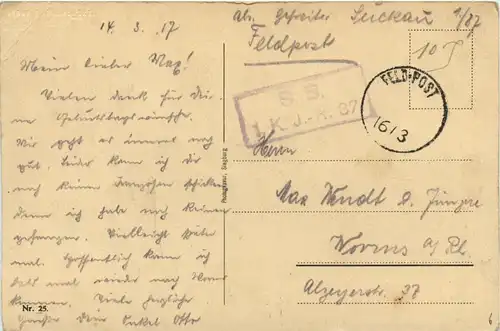 14. 3. 17
Mein lieber Max!
Vielen Dank für Dei-
ne Geburtstagswünsche.
Mir geht es immer noch
gut. Leider kann ich Dir
noch keinen Franzosen schicken
denn ich habe noch keinen
gefangen. Vielleicht später
mal. Hoffentlich kann ich
bald mal wieder nach Worms
kommen. Viele herzliche
Grüße Dein Onkel Otto
Nr. 25.
Abs. Gefreiter Suckau 1/87
Feldpost
S. B.
1. K. J.-R. 87
FELD-POST
16/3
10
Herrn
Max Wendt d. Jüngere
Worms a/ Rh.
Alzeyerstr. 37